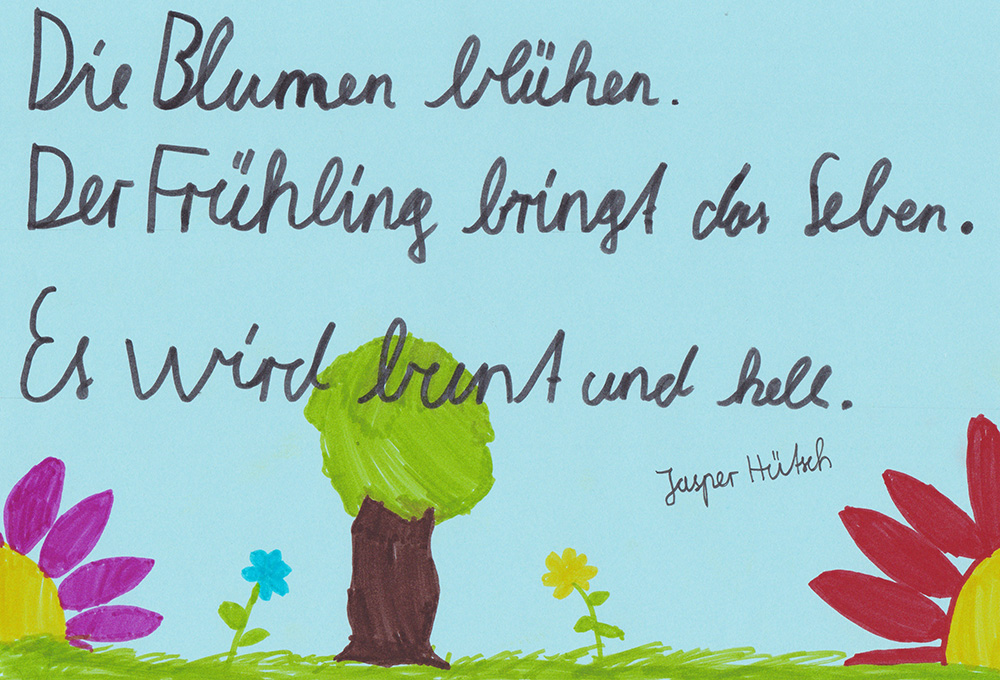 Die Blumen blühen.
Der Frühling bringt das Leben.
Es wird bunt und hell.
Jasper Hütsch